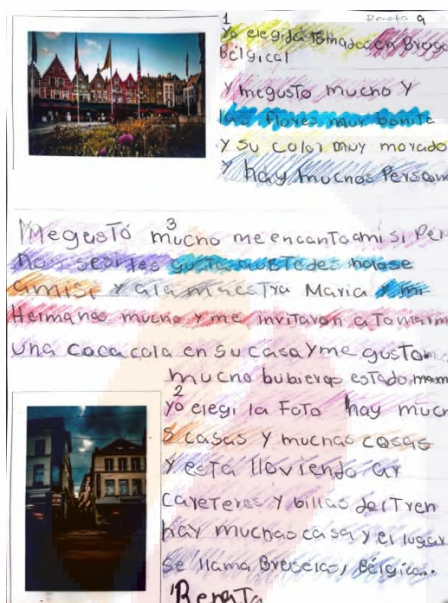 Renata 9
1
Yo elegi da tomada en Brujas
Bélgical
Y megusto mucho Y
las flores muy bonita
Y su color muy morado
Y hay muchas Person
3
Megustó mucho me encanto ami si Per
no se
amisi Y ala maestra Maria Y mi
Hermanas mucho y me invitaron a Tomarm
una coca cola en su casa Y me gusto
mucho bubieras estado mam
2
Yo elegi la Foto hay muc
s casas Y muchas cosas
Y esta lloviendo ay
careteras Y billas del Tren
hay muchas casa y el lugar
se llama Bruselas, Bélgica.
Renata